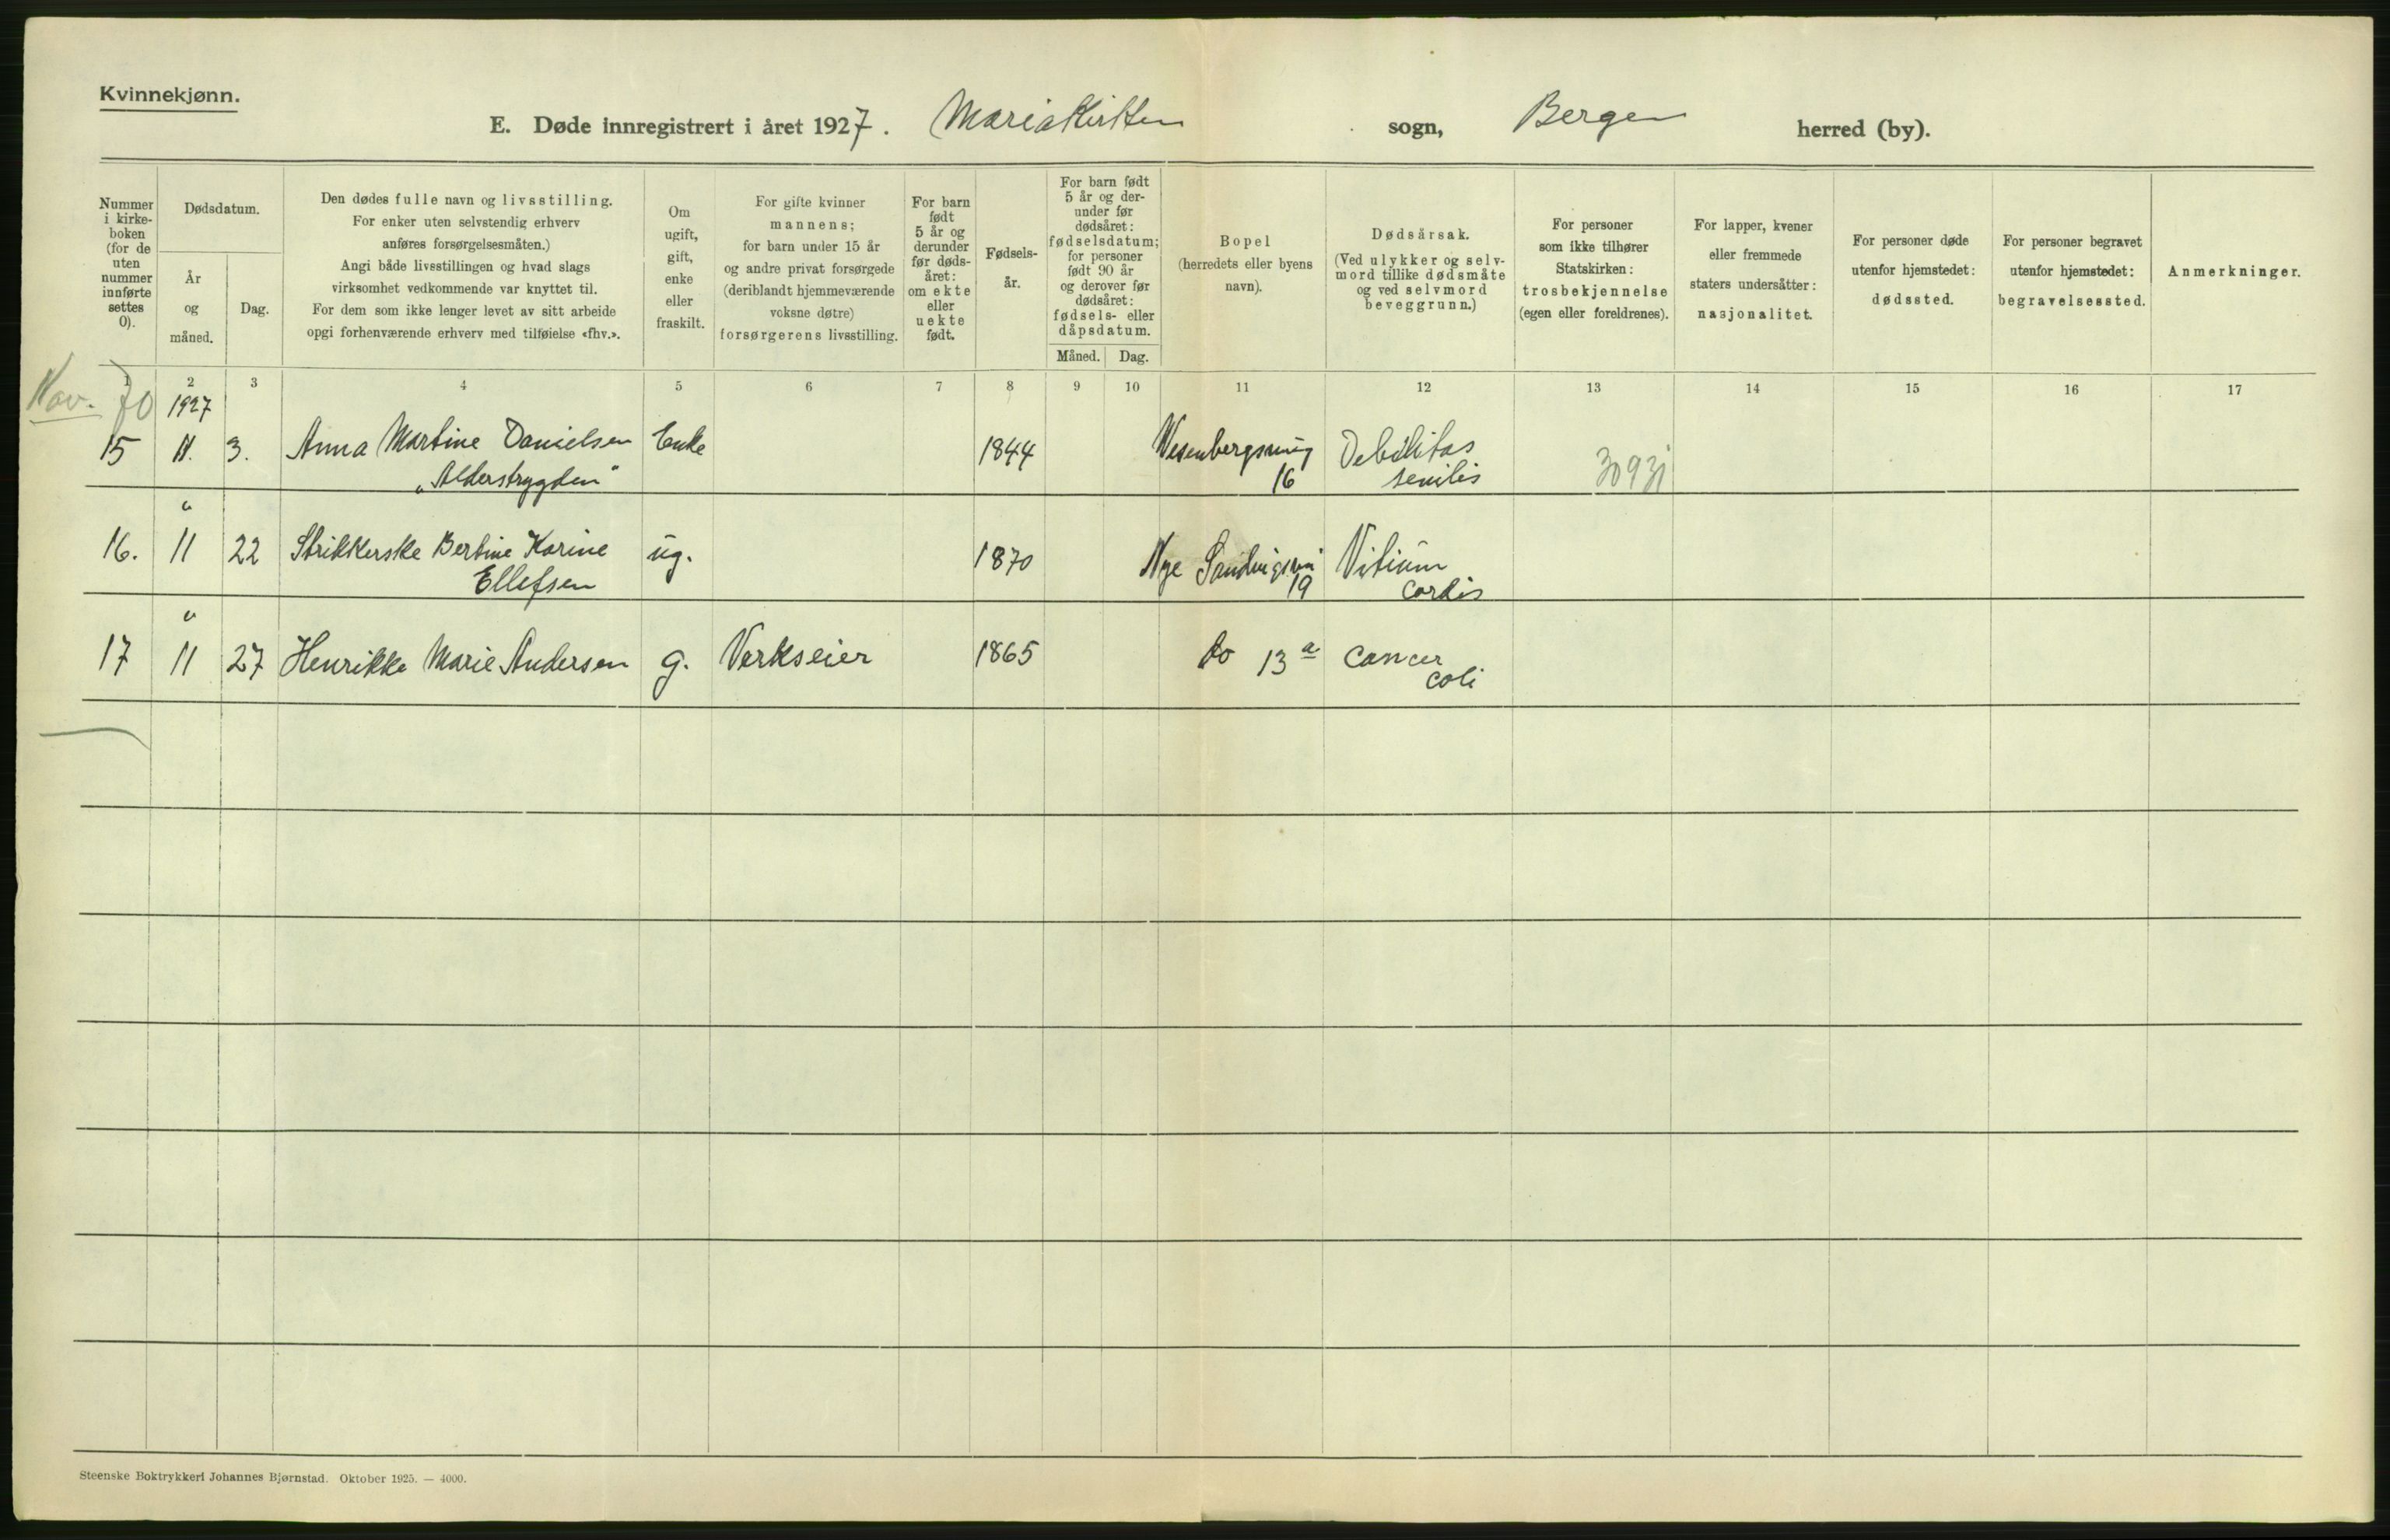 Kvinnekjønn.
E. Døde innregistrert i året 1927. Mariakirken sogn, Bergen herred (by).
Nummer i kirke-boken (for de uten nummer innførte settes 0).
Dødsdatum.
År og måned.
Dag.
Den dødes fulle navn og livsstilling.
For enker uten selvstendig erhverv
anføres forsørgelsesmåten.)
Angi både livsstillingen og hvad slags
virksomhet vedkommende var knyttet til.
For dem som ikke lenger levet av sitt arbeide
opgi forhenværende erhverv med tilføielse «fhv.».
Om ugift, gift, enke eller fraskilt.
For gifte kvinner
mannens;
for barn under 15 år
og andre privat forsørgede
(deriblandt hjemmeværende
voksne døtre)
forsørgerens livsstilling.
For barn født 5 år og derunder før døds-året: om ekte eller uekte født.
Fødsels-år.
For barn født 5 år og der-under før dødsåret: fødselsdatum; for personer født 90 år og derover før dødsåret: fødsels- eller dåpsdatum.
Måned. Dag.
Bopel
(herredets eller byens
navn).
Dødsårsak.
(Ved ulykker og selv-
mord tillike dødsmåte
og ved selvmord
beveggrunn.)
For personer
som ikke tilhører
Statskirken:
trosbekjennelse
(egen eller foreldrenes).
For lapper, kvener
eller fremmede
staters undersåtter:
nasjonalitet.
For personer døde
utenfor hjemstedet:
dødssted.
For personer begravet
utenfor hjemstedet:
begravelsessted.
Anmerkninger.
1 2 3 4 5 6 7 8 9 10 11 12 13 14 15 16 17
Nov. 70 1927
15 11. 3. Anna Martine Danielsen Enke 1844 Wesenbergsmug Debilitas
"Alderstrygden" 16 senilis 3093
"
16. 11 22 Strikkerske Bertine Karine ug. 1870 Nye Sandvigsvei Vitium
Ellefsen 19 cordis
"
17 11 27 Henrikke Marie Andersen g. Verkseier 1865 do 13 a Cancer
coli
Steenske Boktrykkeri Johannes Bjørnstad. Oktober 1925. — 4000.